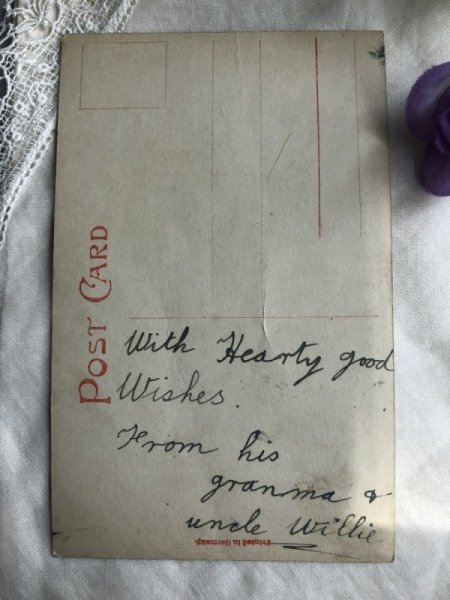 POST CARD
With Hearty good
Wishes.
From his
granma &
uncle Willie
Printed in Germany.